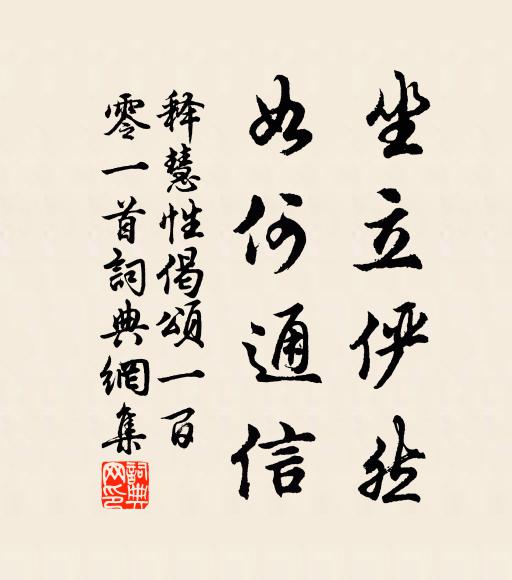 坐立俨然
如何通信
释慧性偈颂一百
零一首词典網集
詞典网印